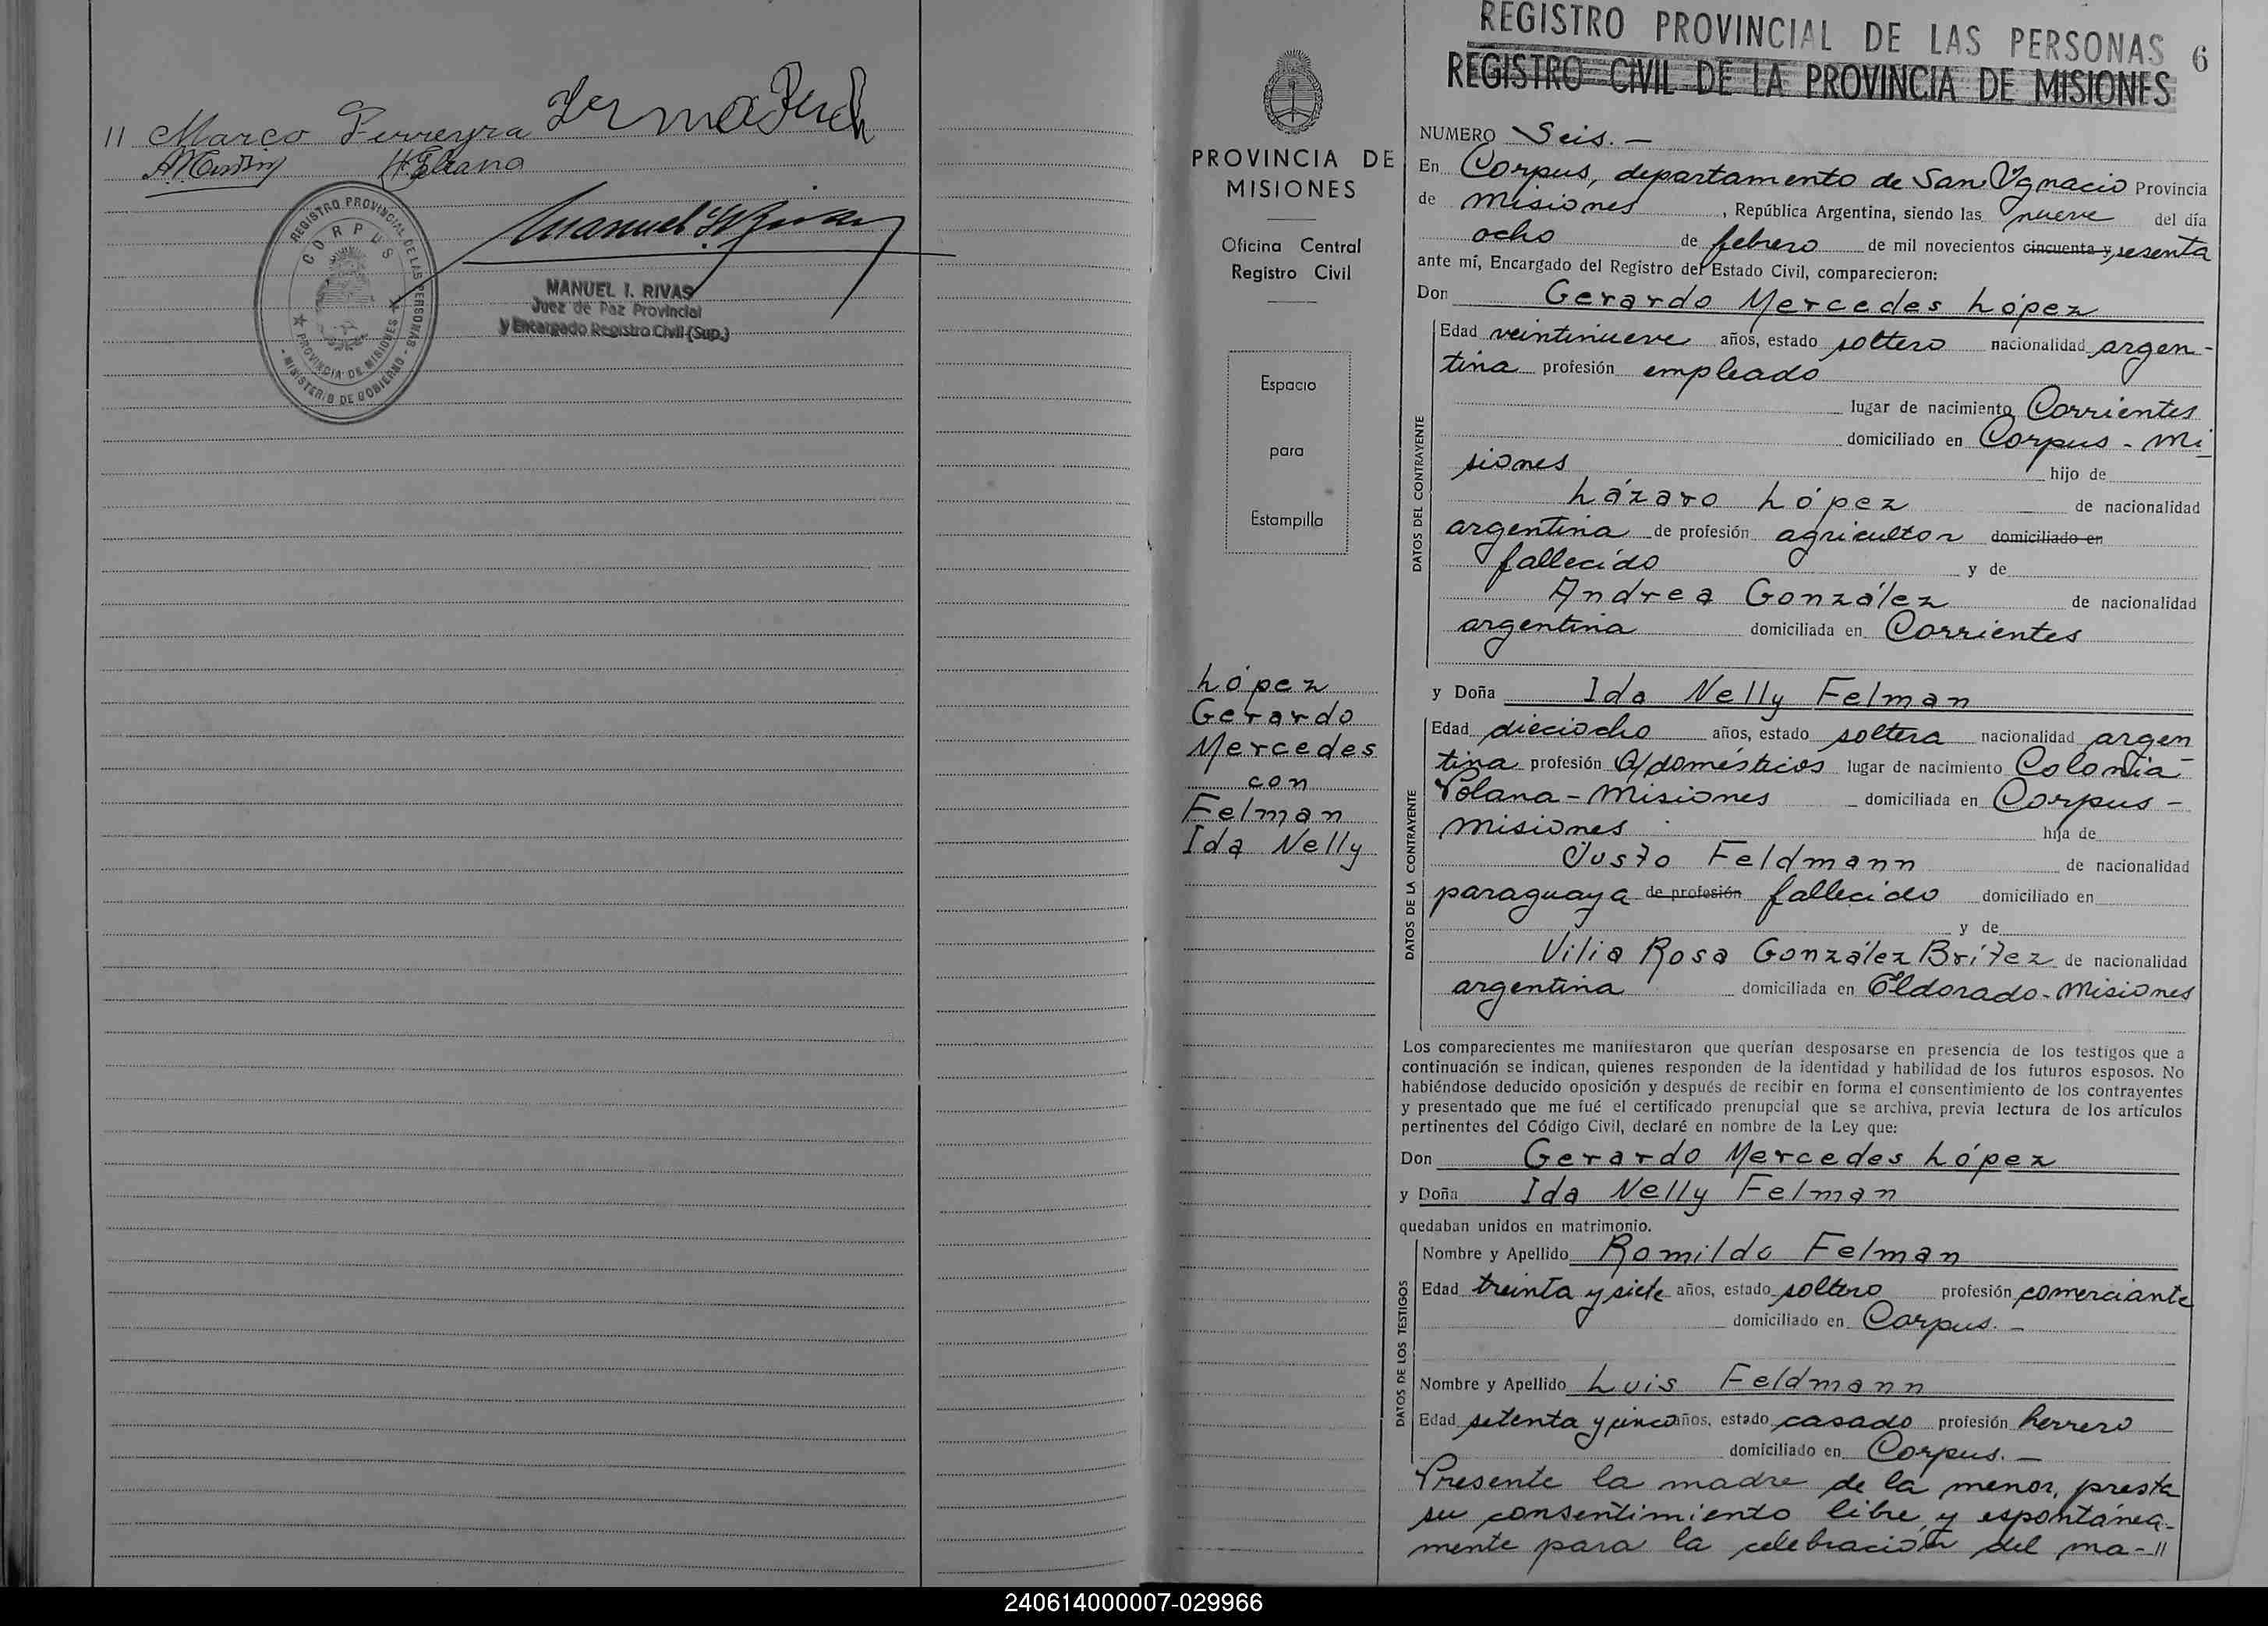 // Marco Ferreyra Irma
REGISTRO PROVINCIAL DE LAS PERSONAS
CORPUS
PROVINCIA DE MISIONES
MINISTERIO DE GOBIERNO
Manuel I. Rivas
MANUEL I. RIVAS
Juez de Paz Provincial
y Encargado Registro Civil (Sup.)
PROVINCIA DE
MISIONES
Oficina Central
Registro Civil
Espacio
para
Estampilla
López
Gerardo
Mercedes
con
Felman
Ida Nelly
REGISTRO PROVINCIAL DE LAS PERSONAS 6
REGISTRO CIVIL DE LA PROVINCIA DE MISIONES
NUMERO Seis.—
En Corpus, departamento de San Ygnacio Provincia
de Misiones, República Argentina, siendo las nueve del día
ocho de febrero de mil novecientos cincuenta y sesenta
ante mí, Encargado del Registro del Estado Civil, comparecieron:
Don Gerardo Mercedes López
DATOS DEL CONTRAYENTE
Edad veintinueve años, estado soltero nacionalidad argen-
tina profesión empleado
lugar de nacimiento Corrientes
domiciliado en Corpus - Mi
siones hijo de
Lázaro López de nacionalidad
argentina de profesión agricultor domiciliado en
fallecido y de
Andrea González de nacionalidad
argentina domiciliada en Corrientes
y Doña Ida Nelly Felman
DATOS DE LA CONTRAYENTE
Edad dieciocho años, estado soltera nacionalidad argen
tina profesión Q/domésticos lugar de nacimiento Colonia
Polana - Misiones domiciliada en Corpus -
Misiones hija de
Justo Feldmann de nacionalidad
paraguaya de profesión fallecido domiciliado en
y de
Vilia Rosa González Brítez de nacionalidad
argentina domiciliada en Eldorado - Misiones
Los comparecientes me manifestaron que querían desposarse en presencia de los testigos que a
continuación se indican, quienes responden de la identidad y habilidad de los futuros esposos. No
habiéndose deducido oposición y después de recibir en forma el consentimiento de los contrayentes
y presentado que me fué el certificado prenupcial que se archiva, previa lectura de los artículos
pertinentes del Código Civil, declaré en nombre de la Ley que:
Don Gerardo Mercedes López
y Doña Ida Nelly Felman
quedaban unidos en matrimonio.
DATOS DE LOS TESTIGOS
Nombre y Apellido Romildo Felman
Edad treinta y siete años, estado soltero profesión comerciante
domiciliado en Corpus.—
Nombre y Apellido Luis Feldmann
Edad setenta y cinco años, estado casado profesión herrero
domiciliado en Corpus.—
Presente la madre de la menor, presta
su consentimiento libre y espontánea-
mente para la celebración del ma-//
240614000007-029966